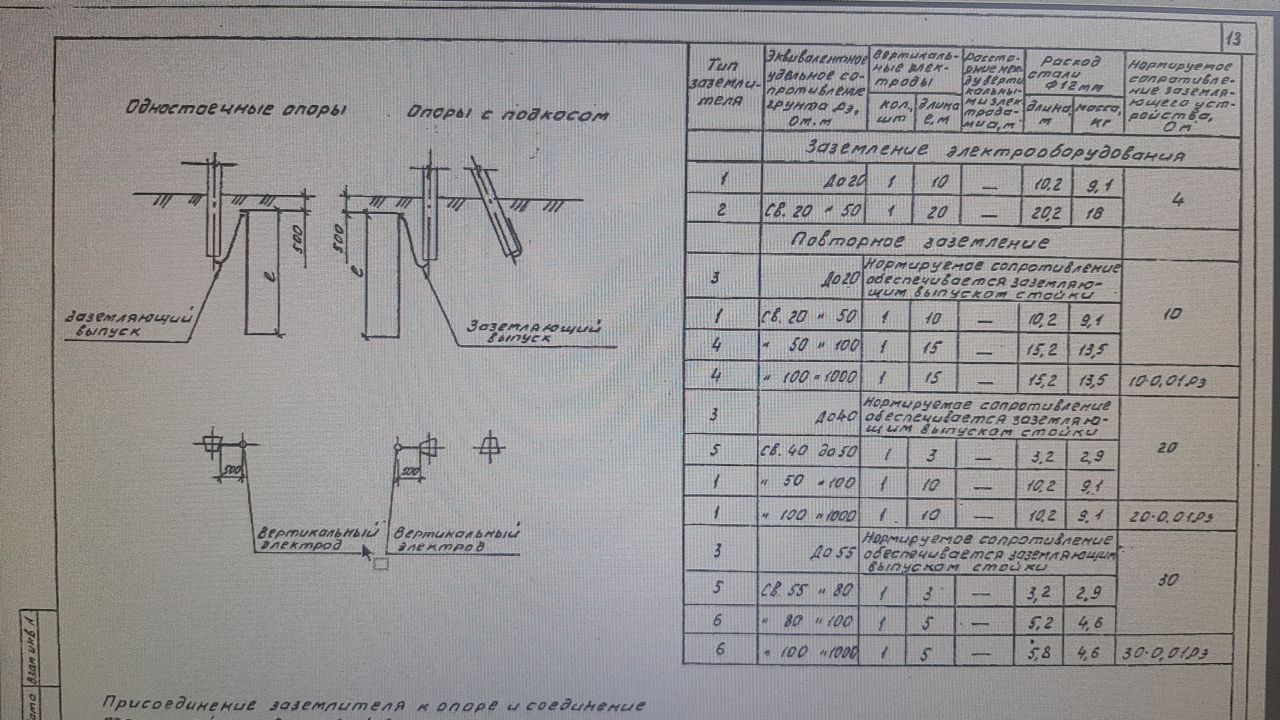 13
Одностоечные опоры
Опоры с подкосом
500
500
е
е
Заземляющий
выпуск
Заземляющий
выпуск
500
500
Вертикальный
электрод
Вертикальный
электрод
Тип заземли-теля
Эквивалентное удельное со-противление грунта ρэ, Ом.м
Вертикаль-ные элек-троды
кол., шт
длина е, м
Расстояние между вертикальными электродами а, м
Расход стали ф12мм
длина, м
масса, кг
Нормируемое сопротивле-ние заземля-ющего уст-ройства, Ом
Заземление электрооборудования
1 До 20 1 10 — 10,2 9,1 4
2 Св. 20 " 50 1 20 — 20,2 18
Повторное заземление
3 До 20 Нормируемое сопротивление
обеспечивается заземляю-
щим выпуском стойки
10
1 Св. 20 " 50 1 10 — 10,2 9,1
4 " 50 " 100 1 15 — 15,2 13,5
4 " 100 " 1000 1 15 — 15,2 13,5 10·0,01ρэ
3 До 40 Нормируемое сопротивление
обеспечивается заземляю-
щим выпуском стойки
20
5 Св. 40 до 50 1 3 — 3,2 2,9
1 " 50 " 100 1 10 — 10,2 9,1
1 " 100 " 1000 1 10 — 10,2 9,1 20·0,01ρэ
3 До 55 Нормируемое сопротивление
обеспечивается заземляющим
выпуском стойки
30
5 Св. 55 " 80 1 3 — 3,2 2,9
6 " 80 " 100 1 5 — 5,2 4,6
6 " 100 " 1000 1 5 — 5,8 4,6 30·0,01ρэ
Взам инв
Присоединение заземлителя к опоре и соединение